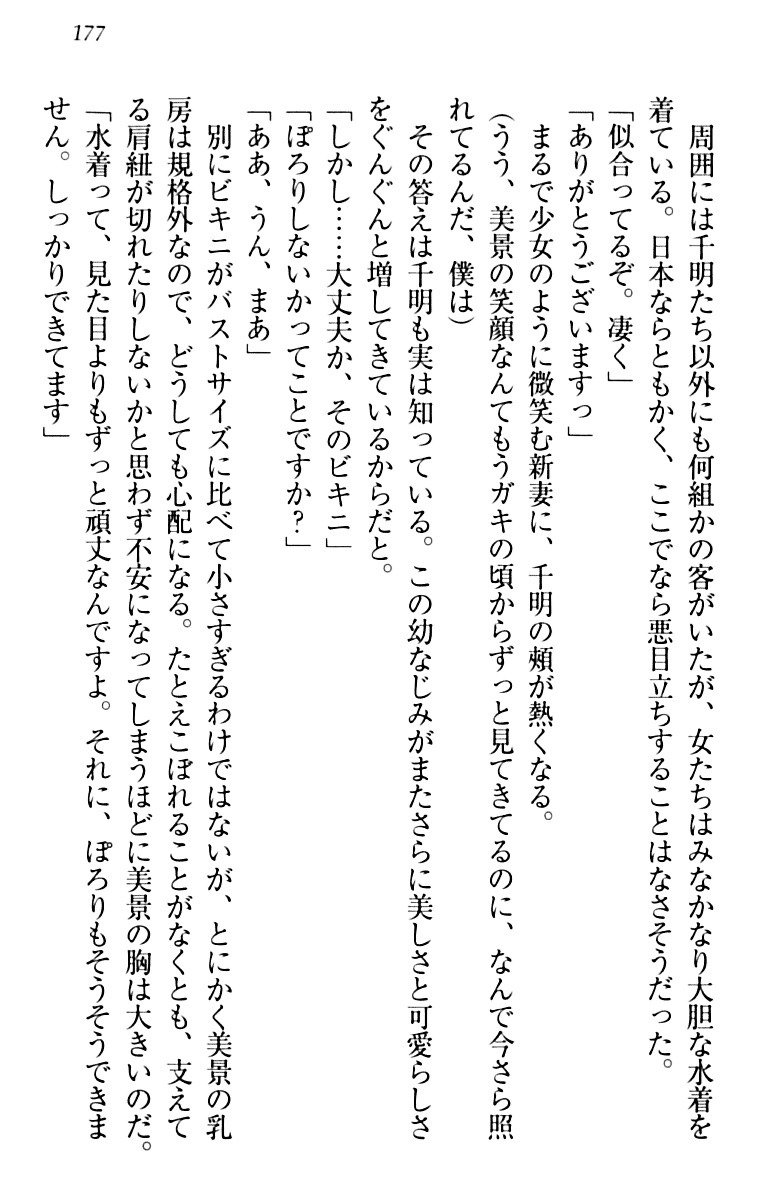 177
周囲には千明たち以外にも何組かの客がいたが、女たちはみなかなり大胆な水着を
着ている。日本ならともかく、ここでなら悪目立ちすることはなさそうだった。
「似合ってるぞ。凄く」
「ありがとうございますっ」
まるで少女のように微笑む新妻に、千明の頰が熱くなる。
(うう、美景の笑顔なんてもうガキの頃からずっと見てきてるのに、なんで今さら照
れてるんだ、僕は)
その答えは千明も実は知っている。この幼なじみがまたさらに美しさと可愛らしさ
をぐんぐんと増してきているからだと。
「しかし……大丈夫か、そのビキニ」
「ぽろりしないかってことですか？」
「ああ、うん、まあ」
別にビキニがバストサイズに比べて小さすぎるわけではないが、とにかく美景の乳
房は規格外なので、どうしても心配になる。たとえこぼれることがなくとも、支えて
る肩紐が切れたりしないかと思わず不安になってしまうほどに美景の胸は大きいのだ。
「水着って、見た目よりもずっと頑丈なんですよ。それに、ぽろりもそうそうできま
せん。しっかりできてます」